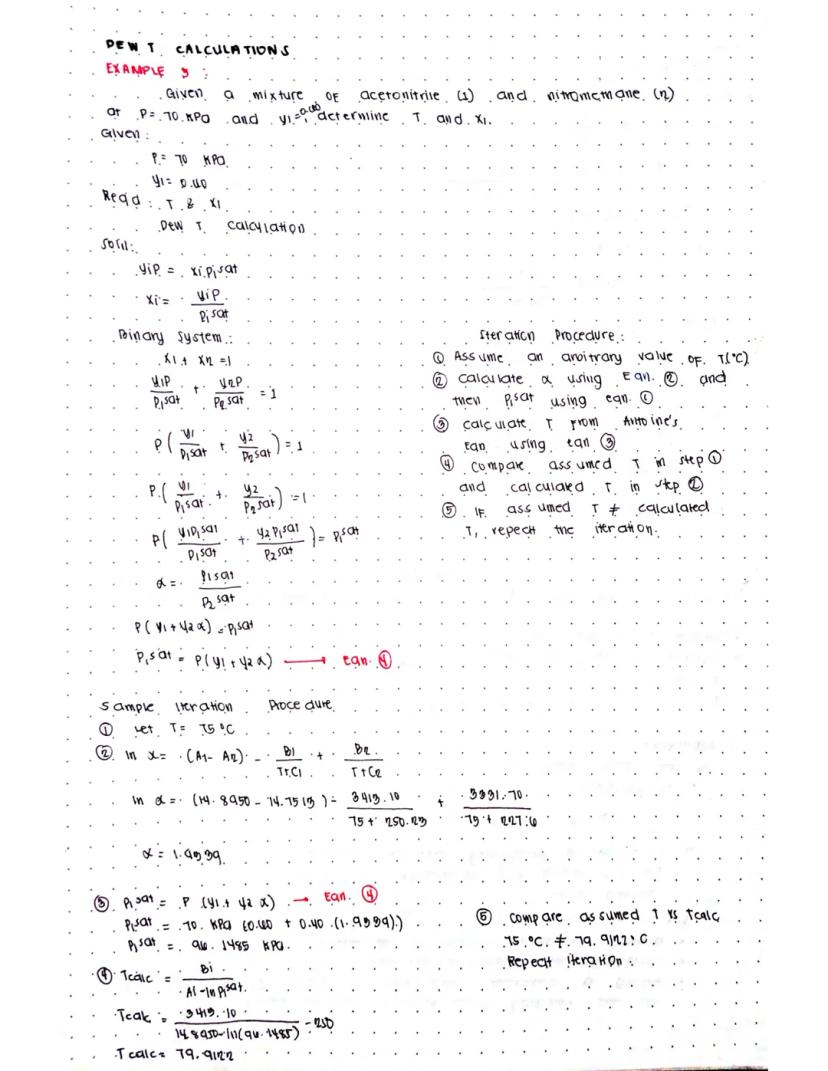 DEW T CALCULATIONS
EXAMPLE 3 :
Given a mixture OF acetonitrile (1) and nitromethane (2)
at P= 70 KPa and y1= determine T and X1.
Given :
P= 70 KPa
y1= 0.60
Reqd : T & X1
Dew T calculation
Sol'n:
yiP = xi Pisat
xi = yiP / Pisat
Binary System :
x1 + x2 = 1
y1P / P1sat + y2P / P2sat = 1
P( y1 / P1sat + y2 / P2sat ) = 1
P( y1 / P1sat + y2 / P2sat ) = 1
P( y1P1sat / P1sat + y2P1sat / P2sat ) = P1sat
α = P1sat / P2sat
P( y1 + y2 α) = P1sat
P1sat = P( y1 + y2 α) ⟶ Eqn. ④
Iteration Procedure :
① Assume an arbitrary value OF T(°C)
② Calculate α using Eqn. ② and
then P1sat using eqn. ①
③ calculate T from Antoine's
Eqn using eqn ③
④ compare assumed T in step ①
and calculated T in step ②
⑤ IF assumed T ≠ calculated
T, repeat the iteration.
Sample Iteration Procedure
① Let T = 75 °C
② ln α = (A1- A2) - B1 / T+C1 + B2 / T+C2
ln α = (14.8950 - 14.7513) - 3413.10 / 75 + 250.23 + 3331.70 / 75 + 227.6
α = 1.9339
③ P1sat = P (y1 + y2 α) → Eqn. ④
P1sat = 70 KPa (0.60 + 0.40 (1.9339))
P1sat = 96.1485 KPa.
④ Tcalc = B1 / A1 - ln P1sat
Tcalc = 3413.10 / 14.8950-ln(96.1485) - 250
Tcalc = 79.9122
⑤ Compare assumed T vs Tcalc
75 °C ≠ 79.9122 °C
Repeat iteration :